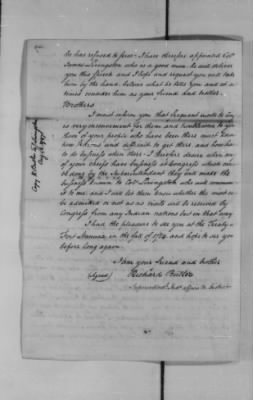 he has refused to fear I have therefore appointed Colo
James Livingston who is a good man, he will deliver
you this speech and I hope and request you will take
him by the hand, believe what he tells you and at all
times consider him as your friend and brother.
Brothers
I must inform you that frequent visits to Cong
very inconvenient for them and
those of your people who have been there must
how and difficult to get there and how
to do business when there. I therefore desire when any
of your chiefs have business to Congress which
be done by the Superintendant they will make the
business known to Colo Livingston who will commun
it to me, and I will let them know whether the must
be admitted or not as no visits will be received by
Congress from any Indian nations but in that way
I had the pleasure to see you at the Treaty
Fort in the fall of 1784 and hope to see you
before long again.
I am your friend and brother
(signed) Richard Butler
Superintendt
Copy R Butler to Livingston